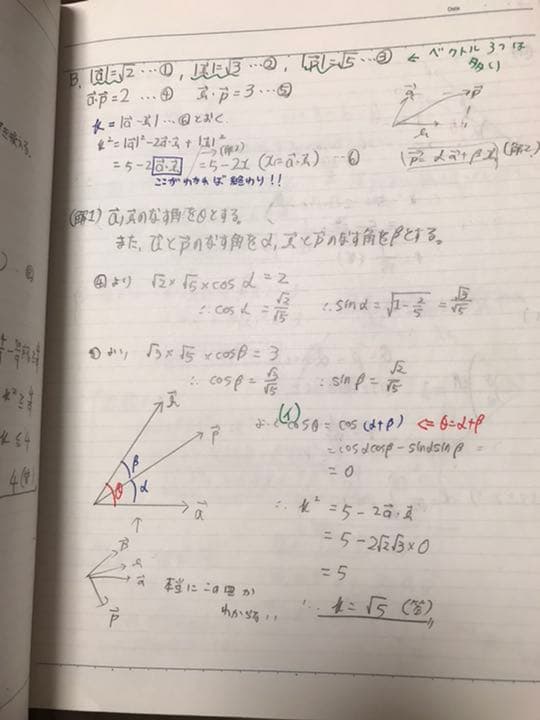 Date
B. |a⃗|=√2 …①, |x⃗|=√3 …②, |p⃗|=√5 …③ ← ベクトル3つは
多い
a⃗・p⃗=2 …④ x⃗・p⃗=3 …⑤
k=|a⃗-x⃗| …⑥とおく
k²=|a⃗|²-2a⃗・x⃗+|x⃗|²
=5-2a⃗・x⃗=5-2x (x=a⃗・x⃗) …⑥
ここがわかれば終わり!!
p⃗=αa⃗+βx⃗ (解2)
(解1) a⃗,x⃗のなす角をθとする。
また、a⃗とp⃗のなす角をα,x⃗とp⃗のなす角をβとする。
④より √2×√5×cosα=2
∴cosα=√2/√5 ∴sinα=√(1-2/5)=√3/√5
より √3×√5×cosβ=3
∴cosβ=√3/√5 ∴sinβ=√2/√5
(イ)
cosθ=cos(α+β) ⇐θ=α+β
=cosαcosβ-sinαsinβ=
=0
∴k²=5-2a⃗・x⃗
=5-2√2√3×0
=5
∴k=√5 (答)
x⃗
p⃗
β
θ
α
a⃗
a⃗
p⃗
本当にこの図か
わからない
k≦4
4(答)